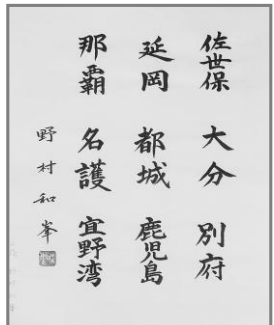 佐世保 大分 別府
延岡 都城 鹿児島
那覇 名護 宜野湾
野村和峯